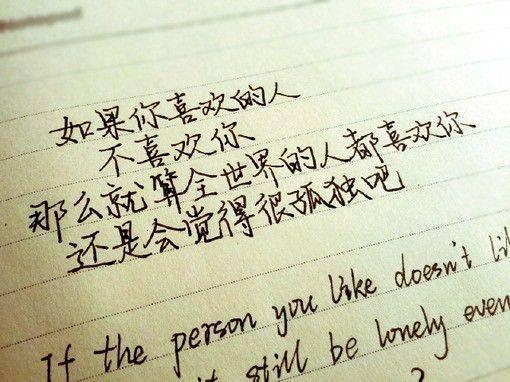 如果你喜欢的人
不喜欢你
那么就算全世界的人都喜欢你
还是会觉得很孤独吧
If the person you like doesn't li
it still be lonely even
?